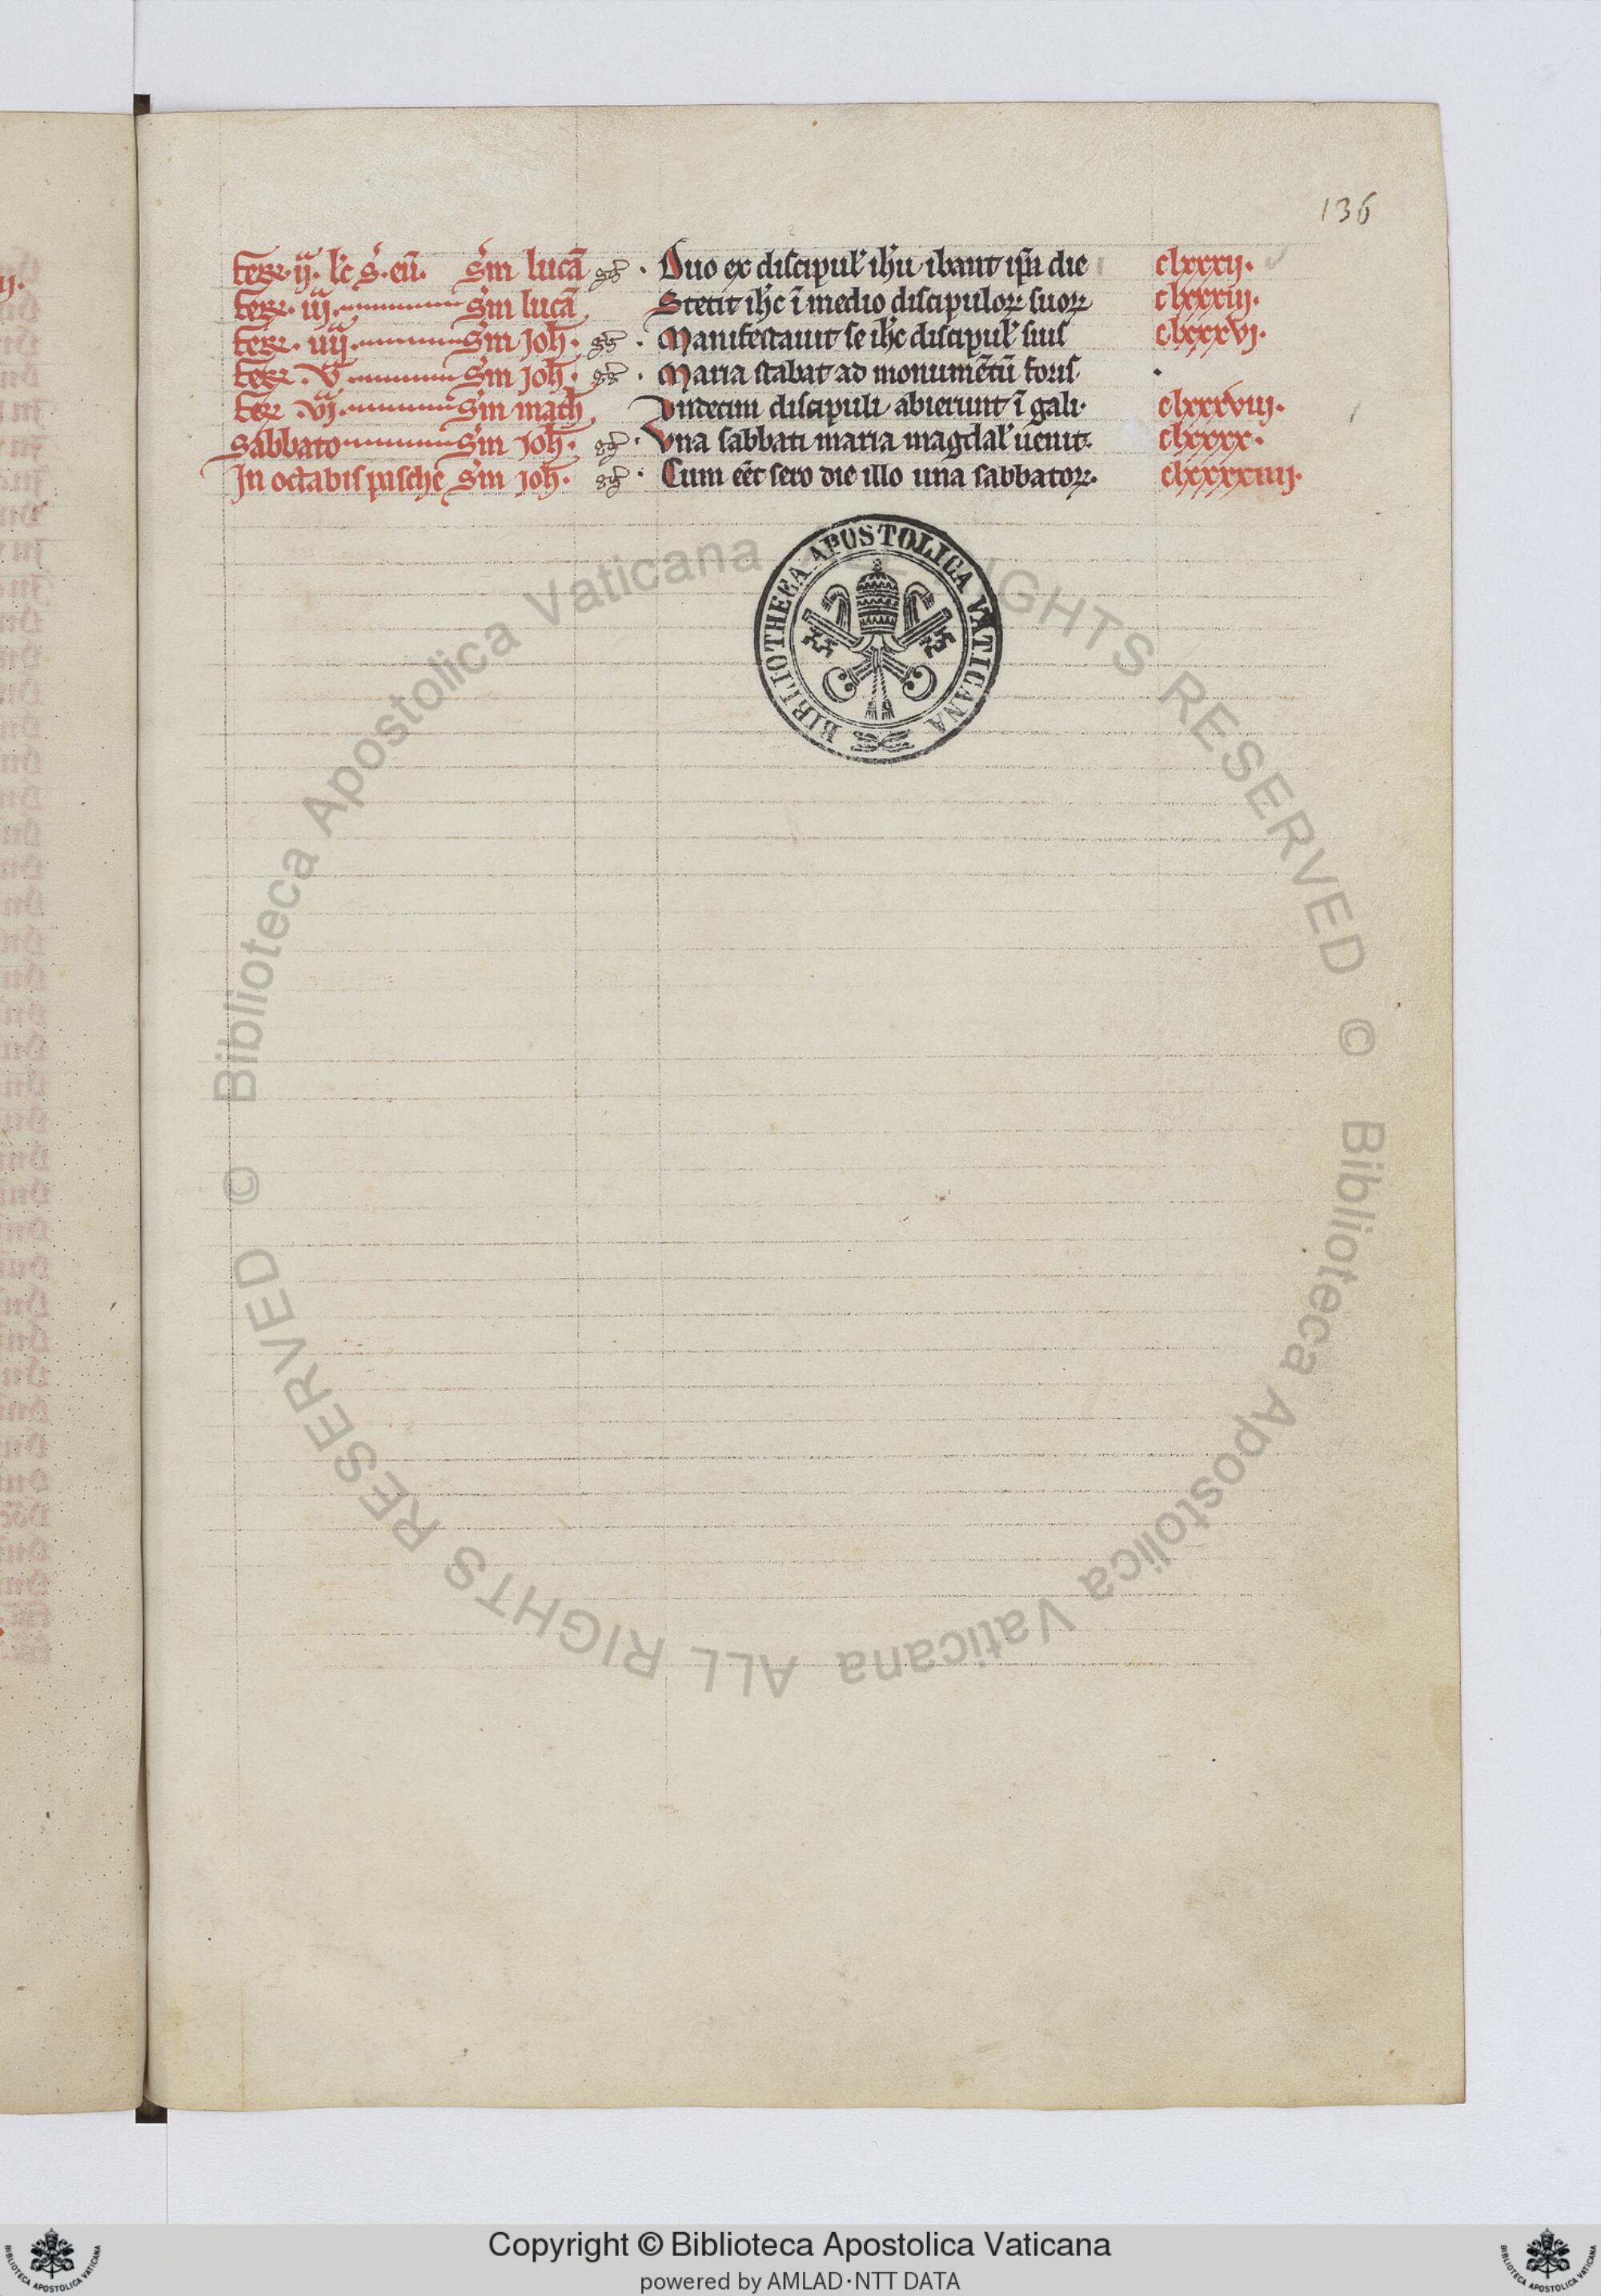 136
ferꝝ. ij. lc̄ s̄. eū. s̄m lucā gg̃ · Duo ex discipul̕ ih̄u ibant ip̄a die clxxxij.
ferꝝ. iij. s̄m lucā Stetit ih̄c ī medio discipuloꝝ suoꝝ clxxxiij.
ferꝝ. iiij. s̄m joh̄. gg̃ · Manifestauit se ih̄c discipul̕ suis clxxxvj.
ferꝝ. v s̄m joh̄. gg̃ · Maria stabat ad monumētū foris.
ferꝝ vj. s̄m math̄ Vndecim discipuli abierunt ī gali. clxxxviij.
Sabbato s̄m joh̄. gg̃ · Vna sabbati maria magdal̕ uenit. clxxxx.
In octabis pasche s̄m joh̄. gg̃ · Cum eēt sero die illo una sabbatoꝝ. clxxxxiiij.
BIBLIOTHECA APOSTOLICA VATICANA
© Biblioteca Apostolica Vaticana ALL RIGHTS RESERVED © Biblioteca Apostolica Vaticana ALL RIGHTS RESERVED
Copyright © Biblioteca Apostolica Vaticana
powered by AMLAD·NTT DATA